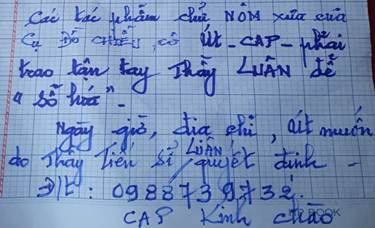 Các tác phẩm chữ NÔM xưa của
Cụ ĐỒ CHIỂU, cô ÚT_CAP_phải
trao tận tay Thầy LUÂN để
"Số hóa"_
Ngày giờ, địa chỉ, út muốn
do Thầy Tiến Sĩ LUÂN quyết định_
Đ/t: 0988739732.
CAP Kính chào